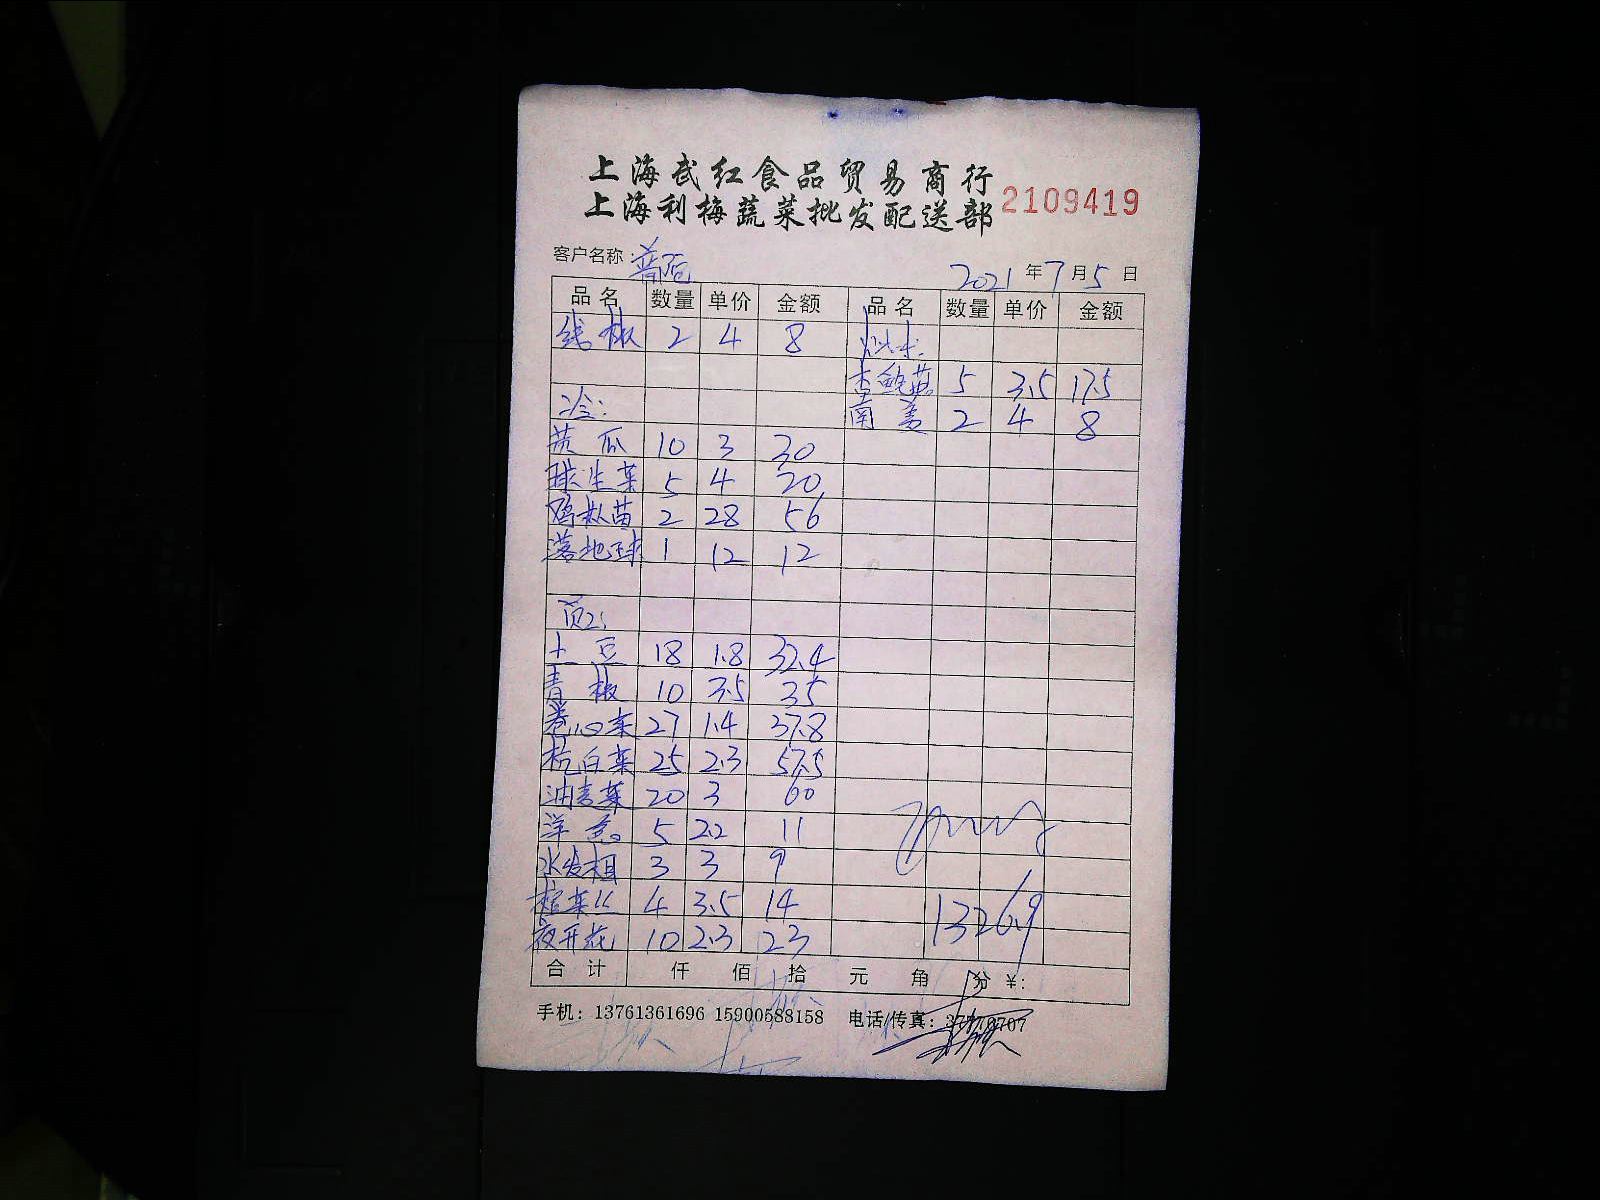 上海武红食品贸易商行
上海利梅蔬菜批发配送部 2109419
客户名称: 普陀 2021年7月5日
品名 数量 单价 金额 品名 数量 单价 金额
线椒 2 4 8
杏鲍菇 5 3.5 17.5
冷: 南姜 2 4 8
苦瓜 10 3 30
球生菜 5 4 20
鸡枞苗 2 28 56
落地球 1 12 12
土豆 18 1.8 32.4
青椒 10 3.5 35
卷心菜 27 1.4 37.8
杭白菜 25 2.3 57.5
油麦菜 20 3 60
洋葱 5 2.2 11
水发 3 3 9
菜丝 4 3.5 14
1326.9
夜开花 10 2.3 23
合计 仟 佰 拾 元 角 分 ¥:
手机: 13761361696 15900588158 电话/传真: